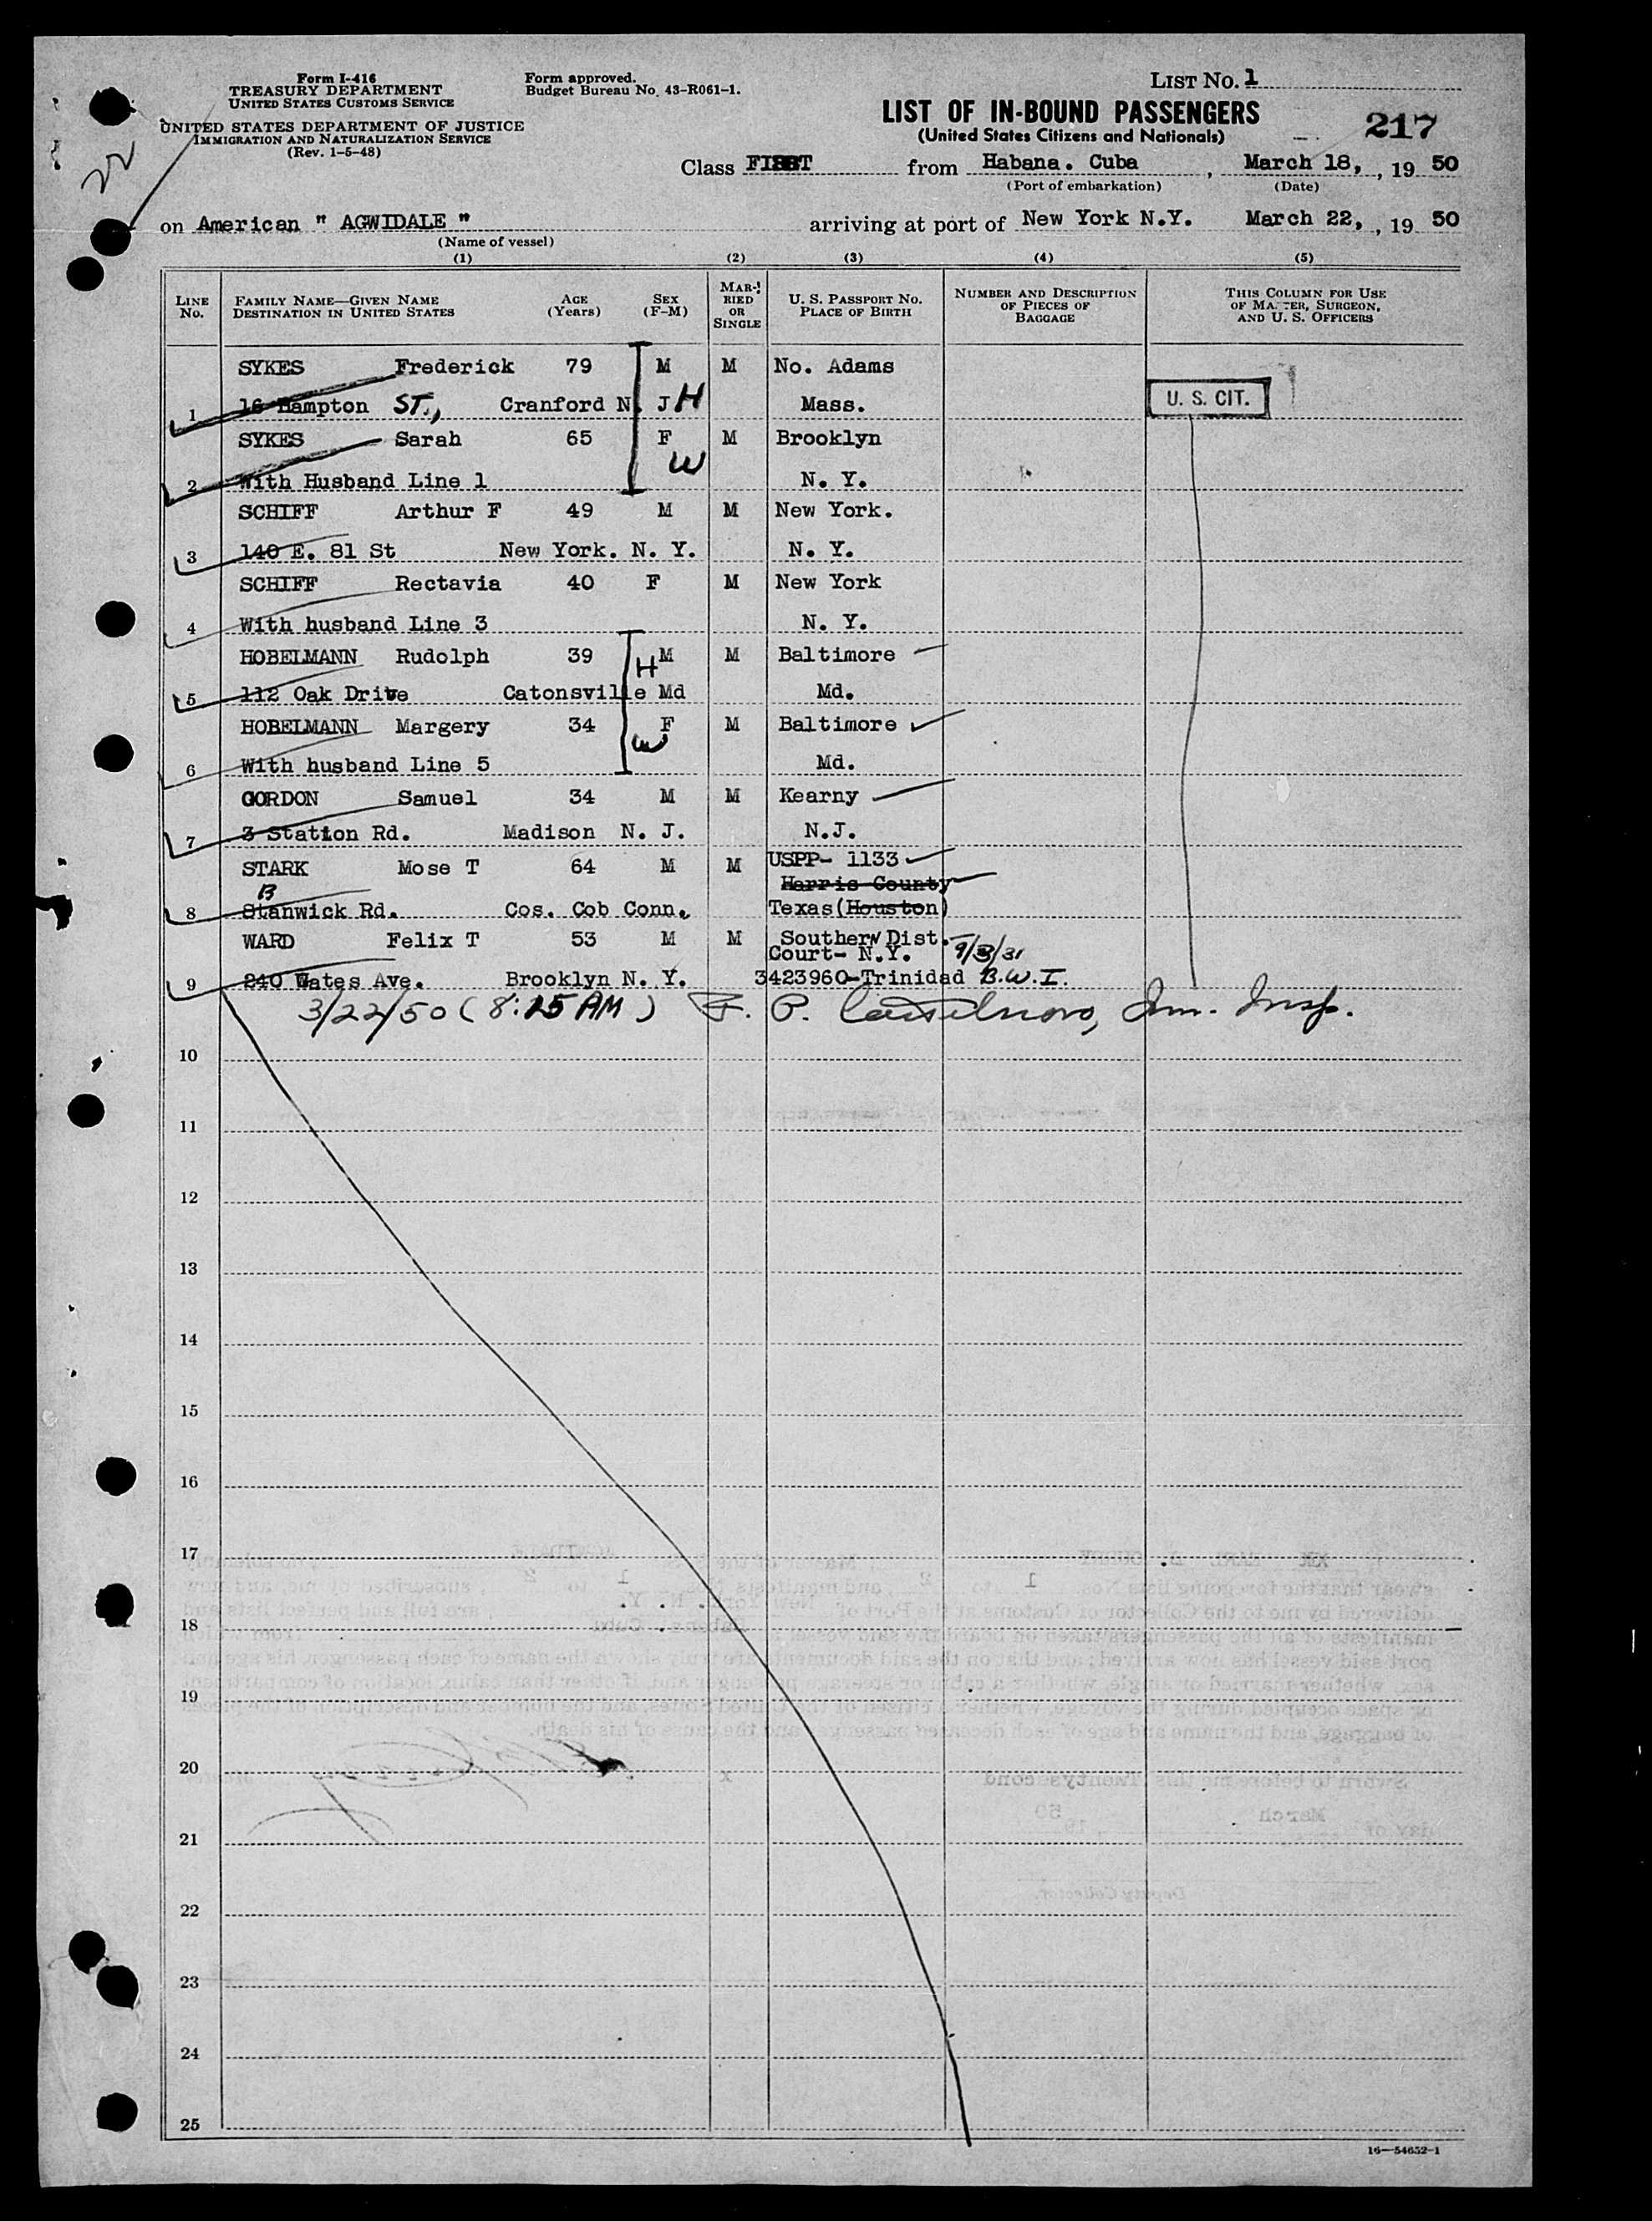 Form I-416
TREASURY DEPARTMENT
UNITED STATES CUSTOMS SERVICE
UNITED STATES DEPARTMENT OF JUSTICE
IMMIGRATION AND NATURALIZATION SERVICE
(Rev. 1-5-48)
Form approved.
Budget Bureau No. 43-R061-1.
LIST NO. 1
LIST OF IN-BOUND PASSENGERS
(United States Citizens and Nationals)
217
22
Class FIRST from Habana. Cuba, March 18, , 19 50
(Port of embarkation) (Date)
on American " AGWIDALE " arriving at port of New York N.Y. March 22, , 19 50
(Name of vessel)
(1) (2) (3) (4) (5)
LINE No. FAMILY NAME—GIVEN NAME DESTINATION IN UNITED STATES AGE (Years) SEX (F-M) MARRIED OR SINGLE U. S. PASSPORT NO. PLACE OF BIRTH NUMBER AND DESCRIPTION OF PIECES OF BAGGAGE THIS COLUMN FOR USE OF MASTER, SURGEON, AND U. S. OFFICERS
SYKES Frederick 79 M M No. Adams
1 16 Hampton ST., Cranford N. J H Mass. U. S. CIT.
SYKES Sarah 65 F M Brooklyn
W
2 With Husband Line 1 N. Y.
SCHIFF Arthur F 49 M M New York.
3 140 E. 81 St New York. N. Y. N. Y.
SCHIFF Rectavia 40 F M New York
4 With husband Line 3 N. Y.
HOBELMANN Rudolph 39 H M M Baltimore
5 112 Oak Drive Catonsville Md Md.
HOBELMANN Margery 34 F M Baltimore
W
6 With husband Line 5 Md.
GORDON Samuel 34 M M Kearny
7 3 Station Rd. Madison N. J. N.J.
STARK Mose T 64 M M USPP- 1133
B Harris County
8 Stanwick Rd. Cos. Cob Conn. Texas(Houston)
WARD Felix T 53 M M Southern Dist.
Court- N.Y. 9/3/31
9 240 Gates Ave. Brooklyn N. Y. 3423960-Trinidad B.W.I.
3/22/50 (8:15 AM) F. P. Imm. Insp.
10
11
12
13
14
15
16
17
18
19
20
21
22
23
24
25
16—54652-1